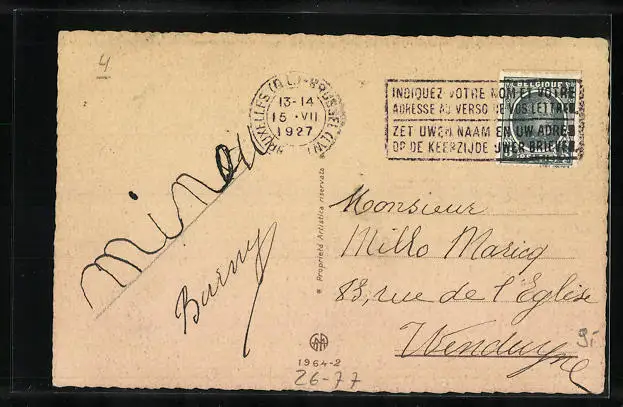 4
BRUXELLES (Q.L.) - BRUSSEL (L.W.)
13-14
15 • VII
1927
INDIQUEZ VOTRE NOM ET VOTRE
ADRESSE AU VERSO DE VOS LETTRES
ZET UWEN NAAM EN UW ADRES
OP DE KEERZIJDE UWER BRIEVEN
BELGIQUE
minou
Barny
* Proprietà Artistica riservata
Monsieur
Milko Maricq
83, rue de l'Eglise
Wenduyne
9.-
1964-2
26-77